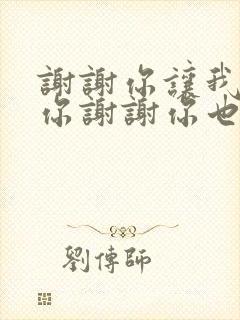 謝謝你讓我
你謝謝你也
劉傳師